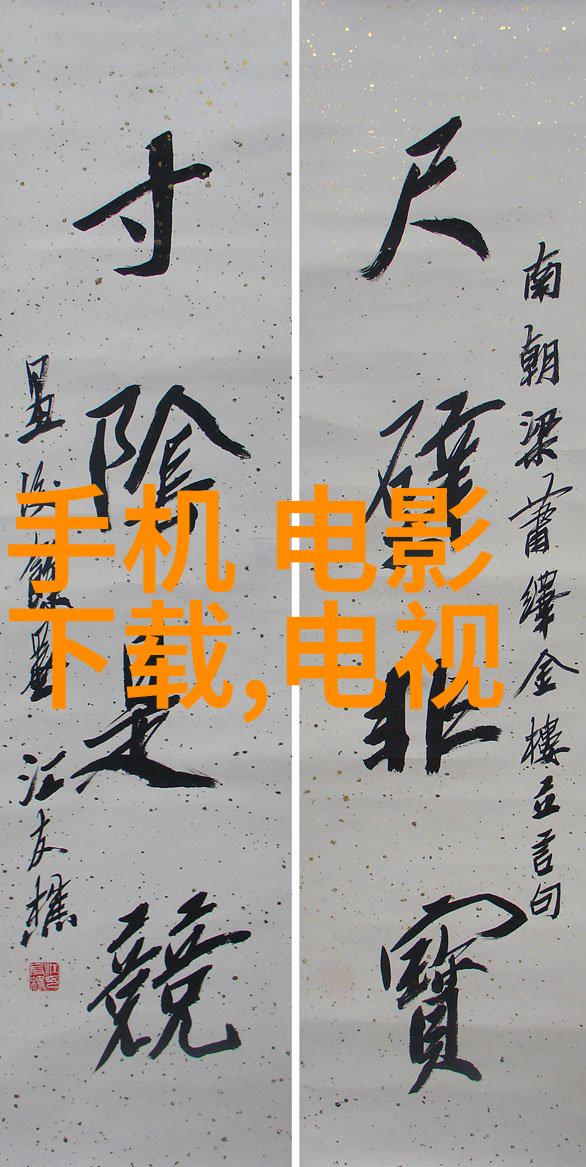 南朝梁蕭繹金樓立言句
尺璧非寶
寸陰是競
江友樵
手机 电影
下载,电视